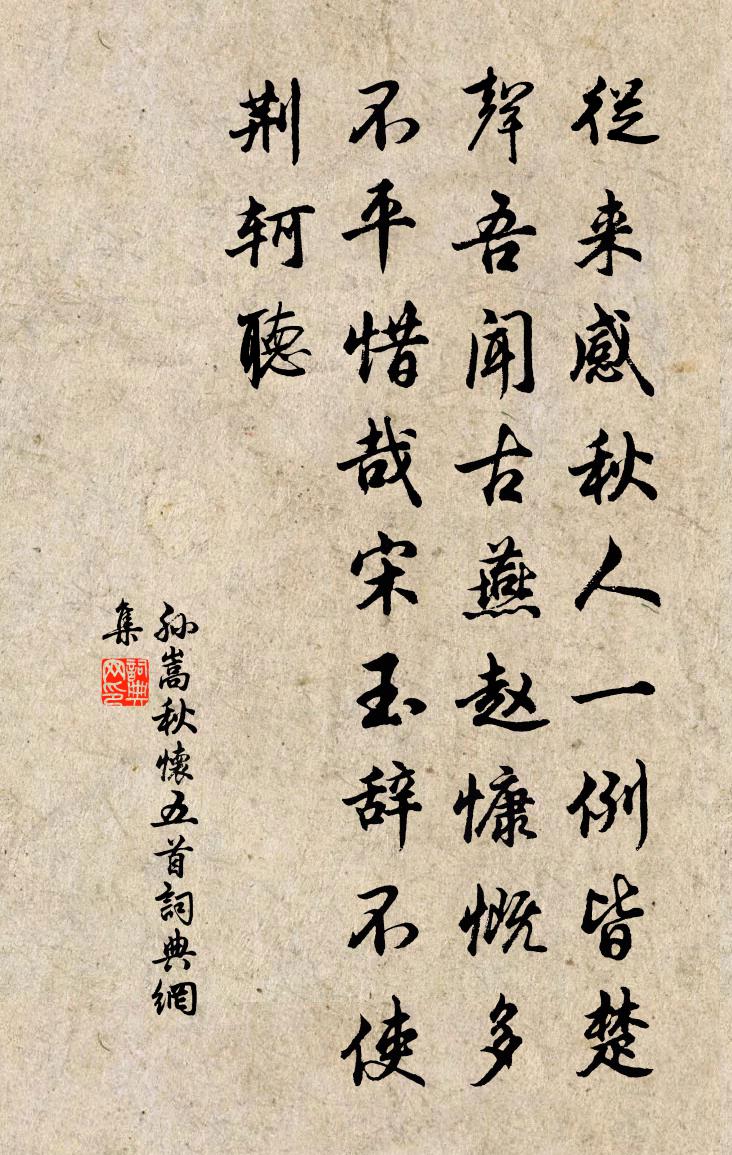 従来感秋人一例皆楚
聲吾闻古燕赵慷慨多
不平惜哉宋玉辞不使
荆轲聴
孙嵩秋懷五首詞典網
集
詞典
网印